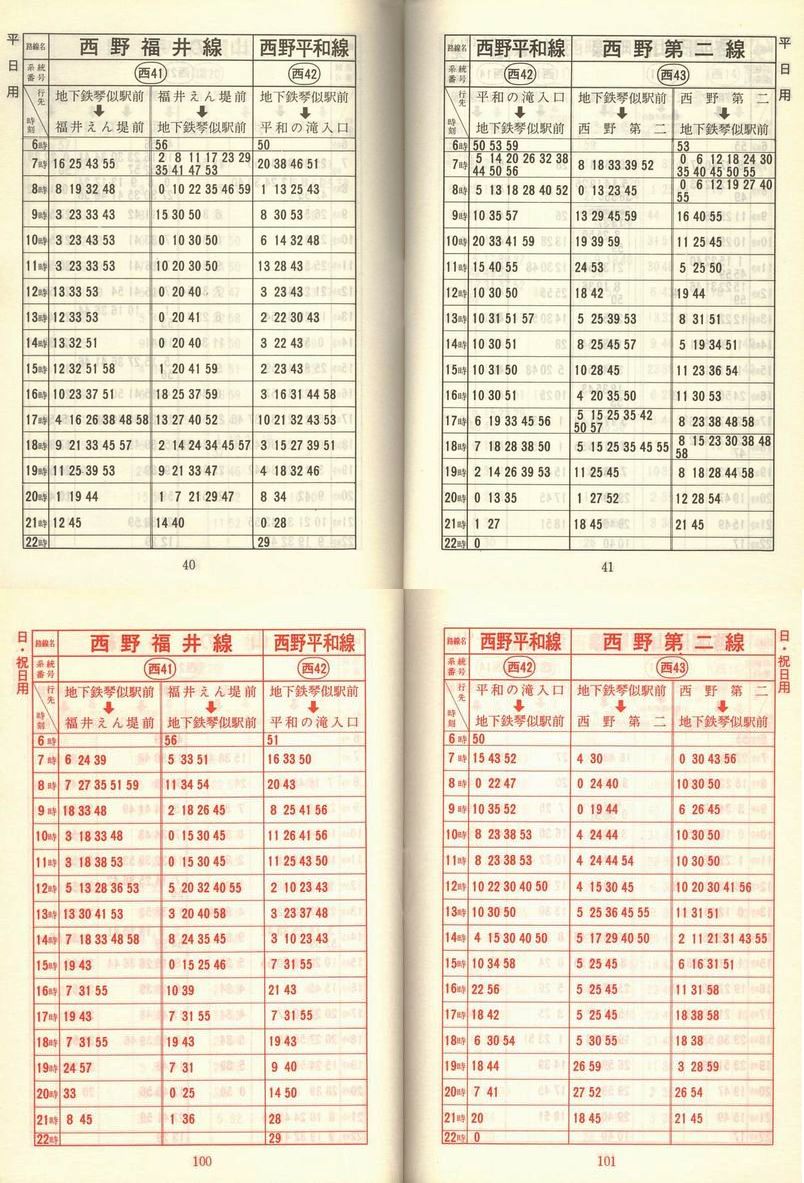 平日用
路線名 西野福井線 西野平和線
系統番号 西41 西42
行先 時刻 地下鉄琴似駅前 福井えん堤前 福井えん堤前 地下鉄琴似駅前 地下鉄琴似駅前 平和の滝入口
6時 56 50
7時 16 25 43 55 2 8 11 17 23 29 35 41 47 53 20 38 46 51
8時 8 19 32 48 0 10 22 35 46 59 1 13 25 43
9時 3 23 33 43 15 30 50 8 30 53
10時 3 23 43 53 0 10 30 50 6 14 32 48
11時 3 23 33 53 10 20 30 50 13 28 43
12時 13 33 53 0 20 40 3 23 43
13時 12 33 53 0 20 41 2 22 30 43
14時 13 32 51 0 20 40 3 22 43
15時 12 32 51 58 1 20 41 59 2 23 43
16時 10 23 37 51 18 25 37 59 3 16 31 44 58
17時 4 16 26 38 48 58 13 27 40 52 10 21 32 43 53
18時 9 21 33 45 57 2 14 24 34 45 57 3 15 27 39 51
19時 11 25 39 53 9 21 33 47 4 18 32 46
20時 1 19 44 1 7 21 29 47 8 34
21時 12 45 14 40 0 28
22時 29
40
平日用
路線名 西野平和線 西野第二線
系統番号 西42 西43
行先 時刻 平和の滝入口 地下鉄琴似駅前 地下鉄琴似駅前 西野第二 西野第二 地下鉄琴似駅前
6時 50 53 59 53
7時 5 14 20 26 32 38 44 50 56 8 18 33 39 52 0 6 12 18 24 30 35 40 45 50 55
8時 5 13 18 28 40 52 0 13 23 45 0 6 12 19 27 40 55
9時 10 35 57 13 29 45 59 16 40 55
10時 20 33 41 59 19 39 59 11 25 45
11時 15 40 55 24 53 5 25 50
12時 10 30 50 18 42 19 44
13時 10 31 51 57 5 25 39 53 8 31 51
14時 10 30 51 8 25 45 57 5 19 34 51
15時 10 31 50 10 28 45 11 23 36 54
16時 10 30 51 4 20 35 50 11 30 53
17時 6 19 33 45 56 5 15 25 35 42 50 57 8 23 38 48 58
18時 7 18 28 38 50 5 15 25 35 45 55 8 15 23 30 38 48 58
19時 2 14 26 39 53 11 25 45 8 18 28 44 58
20時 0 13 35 1 27 52 12 28 54
21時 1 27 18 45 21 45
22時 0
41
日・祝日用
路線名 西野福井線 西野平和線
系統番号 西41 西42
行先 時刻 地下鉄琴似駅前 福井えん堤前 福井えん堤前 地下鉄琴似駅前 地下鉄琴似駅前 平和の滝入口
6時 56 51
7時 6 24 39 5 33 51 16 33 50
8時 7 27 35 51 59 11 34 54 20 43
9時 18 33 48 2 18 26 45 8 25 41 56
10時 3 18 33 48 0 15 30 45 11 26 41 56
11時 3 18 38 53 0 15 30 45 11 25 43 50
12時 5 13 28 36 53 5 20 32 40 55 2 10 23 43
13時 13 30 41 53 3 20 40 58 3 23 37 48
14時 7 18 33 48 58 8 24 35 45 3 10 23 43
15時 19 43 0 15 25 46 7 31 55
16時 7 31 55 10 39 21 43
17時 19 43 7 31 55 7 31 55
18時 7 31 55 19 43 19 43
19時 24 57 7 31 9 40
20時 33 0 25 14 50
21時 8 45 1 36 28
22時 29
100
日・祝日用
路線名 西野平和線 西野第二線
系統番号 西42 西43
行先 時刻 平和の滝入口 地下鉄琴似駅前 地下鉄琴似駅前 西野第二 西野第二 地下鉄琴似駅前
6時 50
7時 15 43 52 4 30 0 30 43 56
8時 0 22 47 0 24 40 10 30 50
9時 10 35 52 0 19 44 6 26 45
10時 8 23 38 53 4 24 44 10 30 50
11時 8 23 38 53 4 24 44 54 10 30 50
12時 10 22 30 40 50 4 15 30 45 10 20 30 41 56
13時 10 30 50 5 25 36 45 55 11 31 51
14時 4 15 30 40 50 5 17 29 40 50 2 11 21 31 43 55
15時 10 34 58 5 25 45 6 16 31 51
16時 22 56 5 25 45 11 31 58
17時 18 42 5 25 45 18 38 58
18時 6 30 54 5 30 55 18 38
19時 18 44 26 59 3 28 59
20時 7 41 27 52 26 54
21時 20 18 45 21 45
22時 0
101